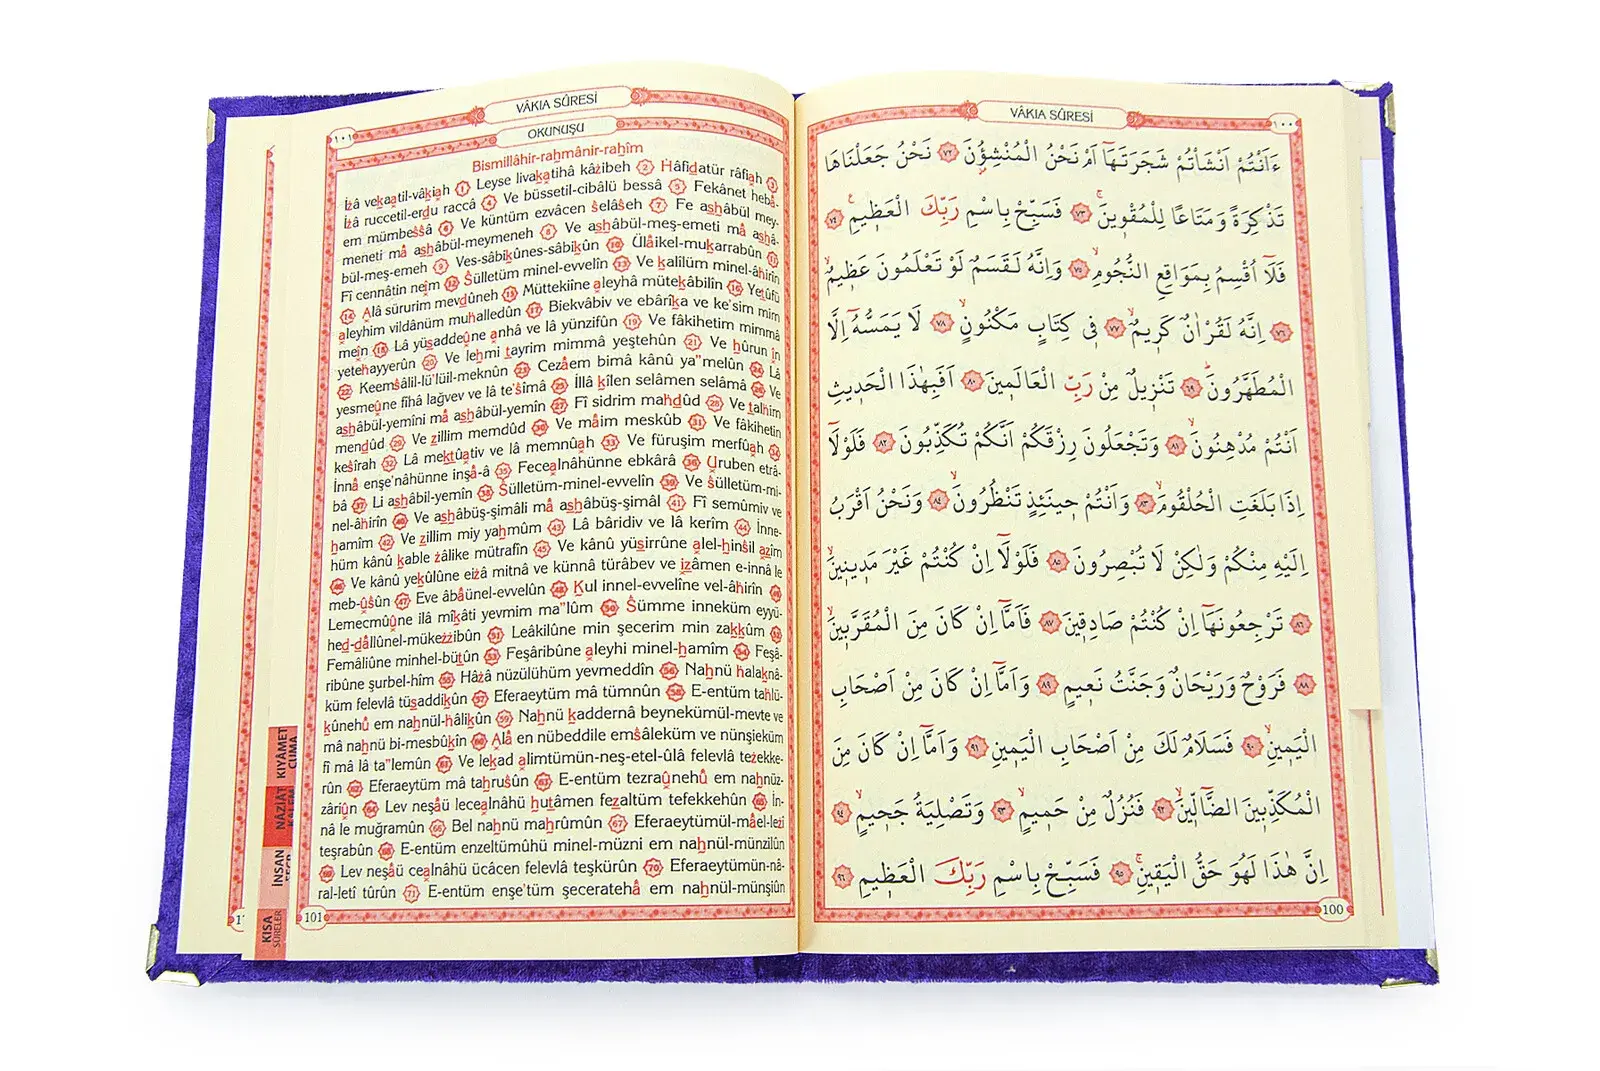 VÂKIA SÛRESİ
١٠٠
ءَاَنْتُمْ اَنْشَأْتُمْ شَجَرَتَهَٓا اَمْ نَحْنُ الْمُنْشِؤُ۫نَ ٧٢ نَحْنُ جَعَلْنَاهَا
تَذْكِرَةً وَمَتَاعًا لِلْمُقْو۪ينَۚ ٧٣ فَسَبِّحْ بِاسْمِ رَبِّكَ الْعَظ۪يمِ۟ ٧٤
فَلَٓا اُقْسِمُ بِمَوَاقِعِ النُّجُومِۙ ٧٥ وَاِنَّهُ لَقَسَمٌ لَوْ تَعْلَمُونَ عَظ۪يمٌۙ
٧٦ اِنَّهُ لَقُرْاٰنٌ كَر۪يمٌۙ ٧٧ ف۪ي كِتَابٍ مَكْنُونٍۙ ٧٨ لَا يَمَسُّهُٓ اِلَّا
الْمُطَهَّرُونَۜ ٧٩ تَنْز۪يلٌ مِنْ رَبِّ الْعَالَم۪ينَ ٨٠ اَفَبِهٰذَا الْحَد۪يثِ
اَنْتُمْ مُدْهِنُونَۙ ٨١ وَتَجْعَلُونَ رِزْقَكُمْ اَنَّكُمْ تُكَذِّبُونَ ٨٢ فَلَوْلَٓا
اِذَا بَلَغَتِ الْحُلْقُومَۙ ٨٣ وَاَنْتُمْ ح۪ينَئِذٍ تَنْظُرُونَۙ ٨٤ وَنَحْنُ اَقْرَبُ
اِلَيْهِ مِنْكُمْ وَلٰكِنْ لَا تُبْصِرُونَ ٨٥ فَلَوْلَٓا اِنْ كُنْتُمْ غَيْرَ مَد۪ين۪ينَۙ
٨٦ تَرْجِعُونَهَٓا اِنْ كُنْتُمْ صَادِق۪ينَ ٨٧ فَاَمَّٓا اِنْ كَانَ مِنَ الْمُقَرَّب۪ينَۙ
٨٨ فَرَوْحٌ وَرَيْحَانٌ وَجَنَّتُ نَع۪يمٍ ٨٩ وَاَمَّٓا اِنْ كَانَ مِنْ اَصْحَابِ
الْيَم۪ينِۙ ٩٠ فَسَلَامٌ لَكَ مِنْ اَصْحَابِ الْيَم۪ينِۜ ٩١ وَاَمَّٓا اِنْ كَانَ مِنَ
الْمُكَذِّب۪ينَ الضَّٓالّ۪ينَۙ ٩٢ فَنُزُلٌ مِنْ حَم۪يمٍۙ ٩٣ وَتَصْلِيَةُ جَح۪يمٍ ٩٤
اِنَّ هٰذَا لَهُوَ حَقُّ الْيَق۪ينِۚ ٩٥ فَسَبِّحْ بِاسْمِ رَبِّكَ الْعَظ۪يمِ ٩٦
100
VÂKIA SÛRESİ
١٠١
OKUNUŞU
Bismillâhir-rahmânir-rahîm
İzâ vekaatil-vâkiah 1 Leyse livakatihâ kâzibeh 2 Hâfidatür râfiah 3
İzâ ruccetil-erdu raccâ 4 Ve büssetil-cibâlü bessâ 5 Fekânet hebâ-
em mümbessâ 6 Ve küntüm ezvâcen selâseh 7 Fe ashâbül mey-
meneti mâ ashâbül-meymeneh 8 Ve ashâbül-meş-emeti mâ ashâ-
bül-meş-emeh 9 Ves-sâbikûnes-sâbikûn 10 Ülâikel-mukarrabûn 11
Fî cennâtin neîm 12 Sülletüm minel-evvelîn 13 Ve kalîlüm minel-âhirîn
14 Alâ sürurim mevdûneh 15 Müttekiîne aleyhâ mütekâbilîn 16 Yetûfü
aleyhim vildânüm muhalledûn 17 Biekvâbiv ve ebârîka ve ke'sim mim
meîn 18 Lâ yüsaddeûne anhâ ve lâ yünzifûn 19 Ve fâkihetim mimmâ
yetehayyerûn 20 Ve lehmi tayrim mimmâ yeştehûn 21 Ve hûrun în
22 Keemsâlil-lü'lüil-meknûn 23 Cezâem bimâ kânû ya"melûn 24 Lâ
yesmeûne fîhâ lağvev ve lâ te'sîmâ 25 İllâ kîlen selâmen selâmâ 26 Ve
ashâbül-yemîni mâ ashâbül-yemîn 27 Fî sidrim mahdûd 28 Ve talhim
mendûd 29 Ve zillim memdûd 30 Ve mâim meskûb 31 Ve fâkihetin
kesîrah 32 Lâ mektûativ ve lâ memnûah 33 Ve füruşim merfûah 34
İnnâ enşe'nâhünne inşâ-â 35 Fecealnâhünne ebkârâ 36 Uruben etrâ-
bâ 37 Li ashâbil-yemîn 38 Sülletüm-minel-evvelîn 39 Ve sülletüm-mi-
nel-âhirîn 40 Ve ashâbüş-şimâli mâ ashâbüş-şimâl 41 Fî semûmiv ve
hamîm 42 Ve zillim miy yahmûm 43 Lâ bâridiv ve lâ kerîm 44 İnne-
hüm kânû kable zâlike mütrafîn 45 Ve kânû yüsirrûne alel-hinsil azîm
46 Ve kânu yekûlûne eizâ mitnâ ve künnâ türâbev ve izâmen e-innâ le
meb-ûsûn 47 Eve âbâünel-evvelûn 48 Kul innel-evvelîne vel-âhirîn 49
Lemecmûûne ilâ mîkâti yevmim ma"lûm 50 Sümme inneküm eyyü-
hed-dâllûnel-mükezzibûn 51 Leâkilûne min şecerim min zakkûm 52
Femâliûne minhel-bütûn 53 Feşâribûne aleyhi minel-hamîm 54 Feşâ-
ribûne şurbel-hîm 55 Hâzâ nüzülühüm yevmeddîn 56 Nahnü halaknâ-
küm felevlâ tüsaddikûn 57 Eferaeytüm mâ tümnûn 58 E-entüm tahlü-
kûnehû em nahnül-hâlikûn 59 Nahnü kaddernâ beynekümül-mevte ve
mâ nahnü bi-mesbûkîn 60 Alâ en nübeddile emsâleküm ve nünşieküm
fî mâ lâ ta"lemûn 61 Ve lekad alimtümün-neş-etel-ûlâ felevlâ tezekke-
rûn 62 Eferaeytüm mâ tahrusûn 63 E-entüm tezraûnehû em nahnüz-
zâriûn 64 Lev neşâü lecealnâhü hutâmen fezaltüm tefekkehûn 65 İn-
nâ le muğramûn 66 Bel nahnü mahrûmûn 67 Eferaeytümül-mâel-lezî
teşrabûn 68 E-entüm enzeltümûhü minel-müzni em nahnül-münzilûn
69 Lev neşâü cealnâhü ücâcen felevlâ teşkürûn 70 Eferaeytümün-nâ-
ral-letî tûrûn 71 E-entüm enşe'tüm şeceratehâ em nahnül-münşiûn
101
KIYÂMET
CUMA
NÂZİÂT
İNSAN
KISA
SÛRELER